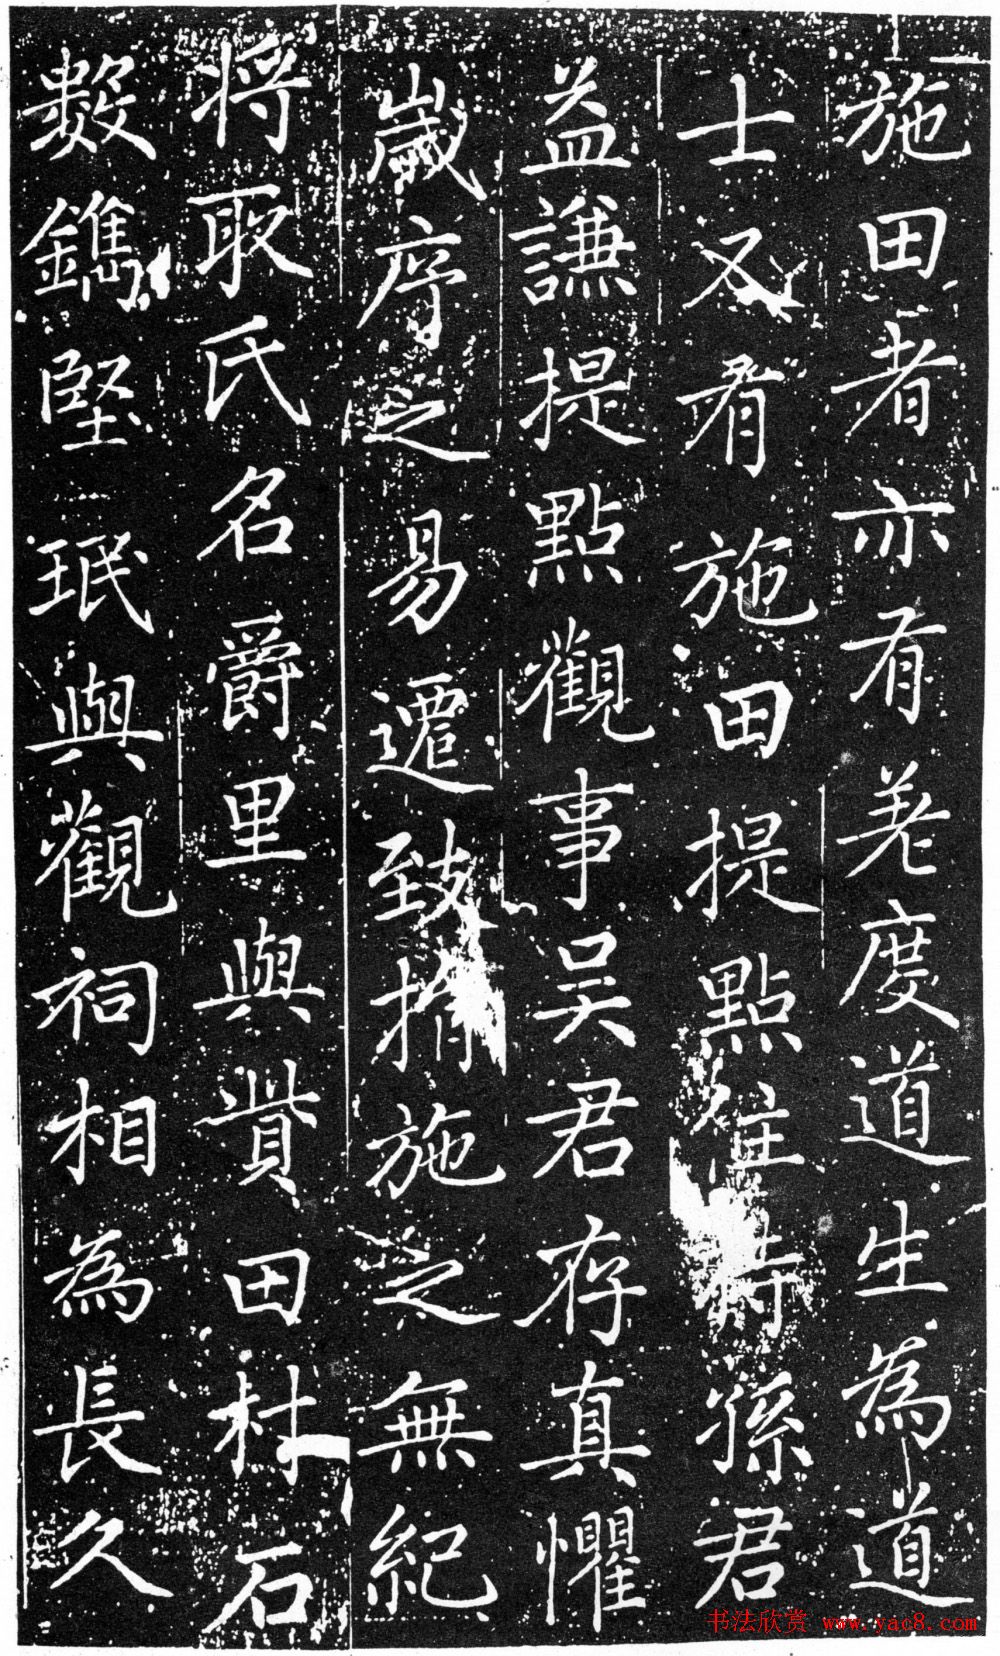 施田者亦有羌度道生為道
士又有施田提點住持孫君
益謙提點觀事吳君存真懼
歲序之易遷致捐施之無紀
将取氏名爵里與貲田村石
數鐫堅珉與觀祠相為長久
书法欣赏 www.yac8.com